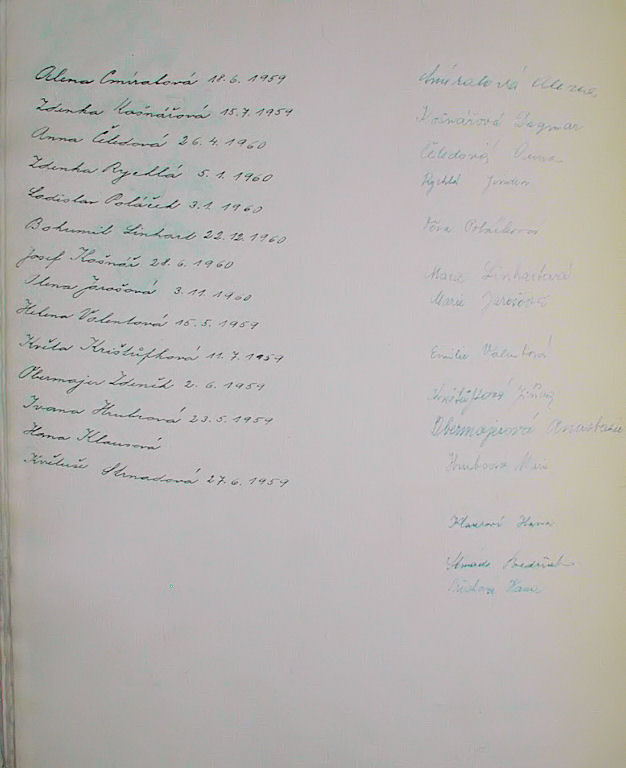 Alena Cmíralová 18.6.1959
Zdenka Košnářová 15.7.1959
Anna Čeledová 26.4.1960
Zdenka Rychlá 5.1.1960
Ladislav Poláček 3.1.1960
Bohumil Linhart 22.12.1960
Josef Košnář 28.6.1960
Ilena Jarošová 3.11.1960
Helena Valentová 15.5.1959
Květa Krištůfková 11.7.1959
Obermajer Zdeněk 2.6.1959
Ivana Hrubová 23.5.1959
Hana Klausová
Květuše Strnadová 27.6.1959
Cmíralová Alena
Košnářová Dagmar
Čeledová Anna
Rychlá
Poláčková
Marie Linhartová
Marie Jarošová
Emilie Valentová
Krištůfková Jiřina
Obermajerová Anastazie
Hrubová Marie
Klausová Hana
Hana